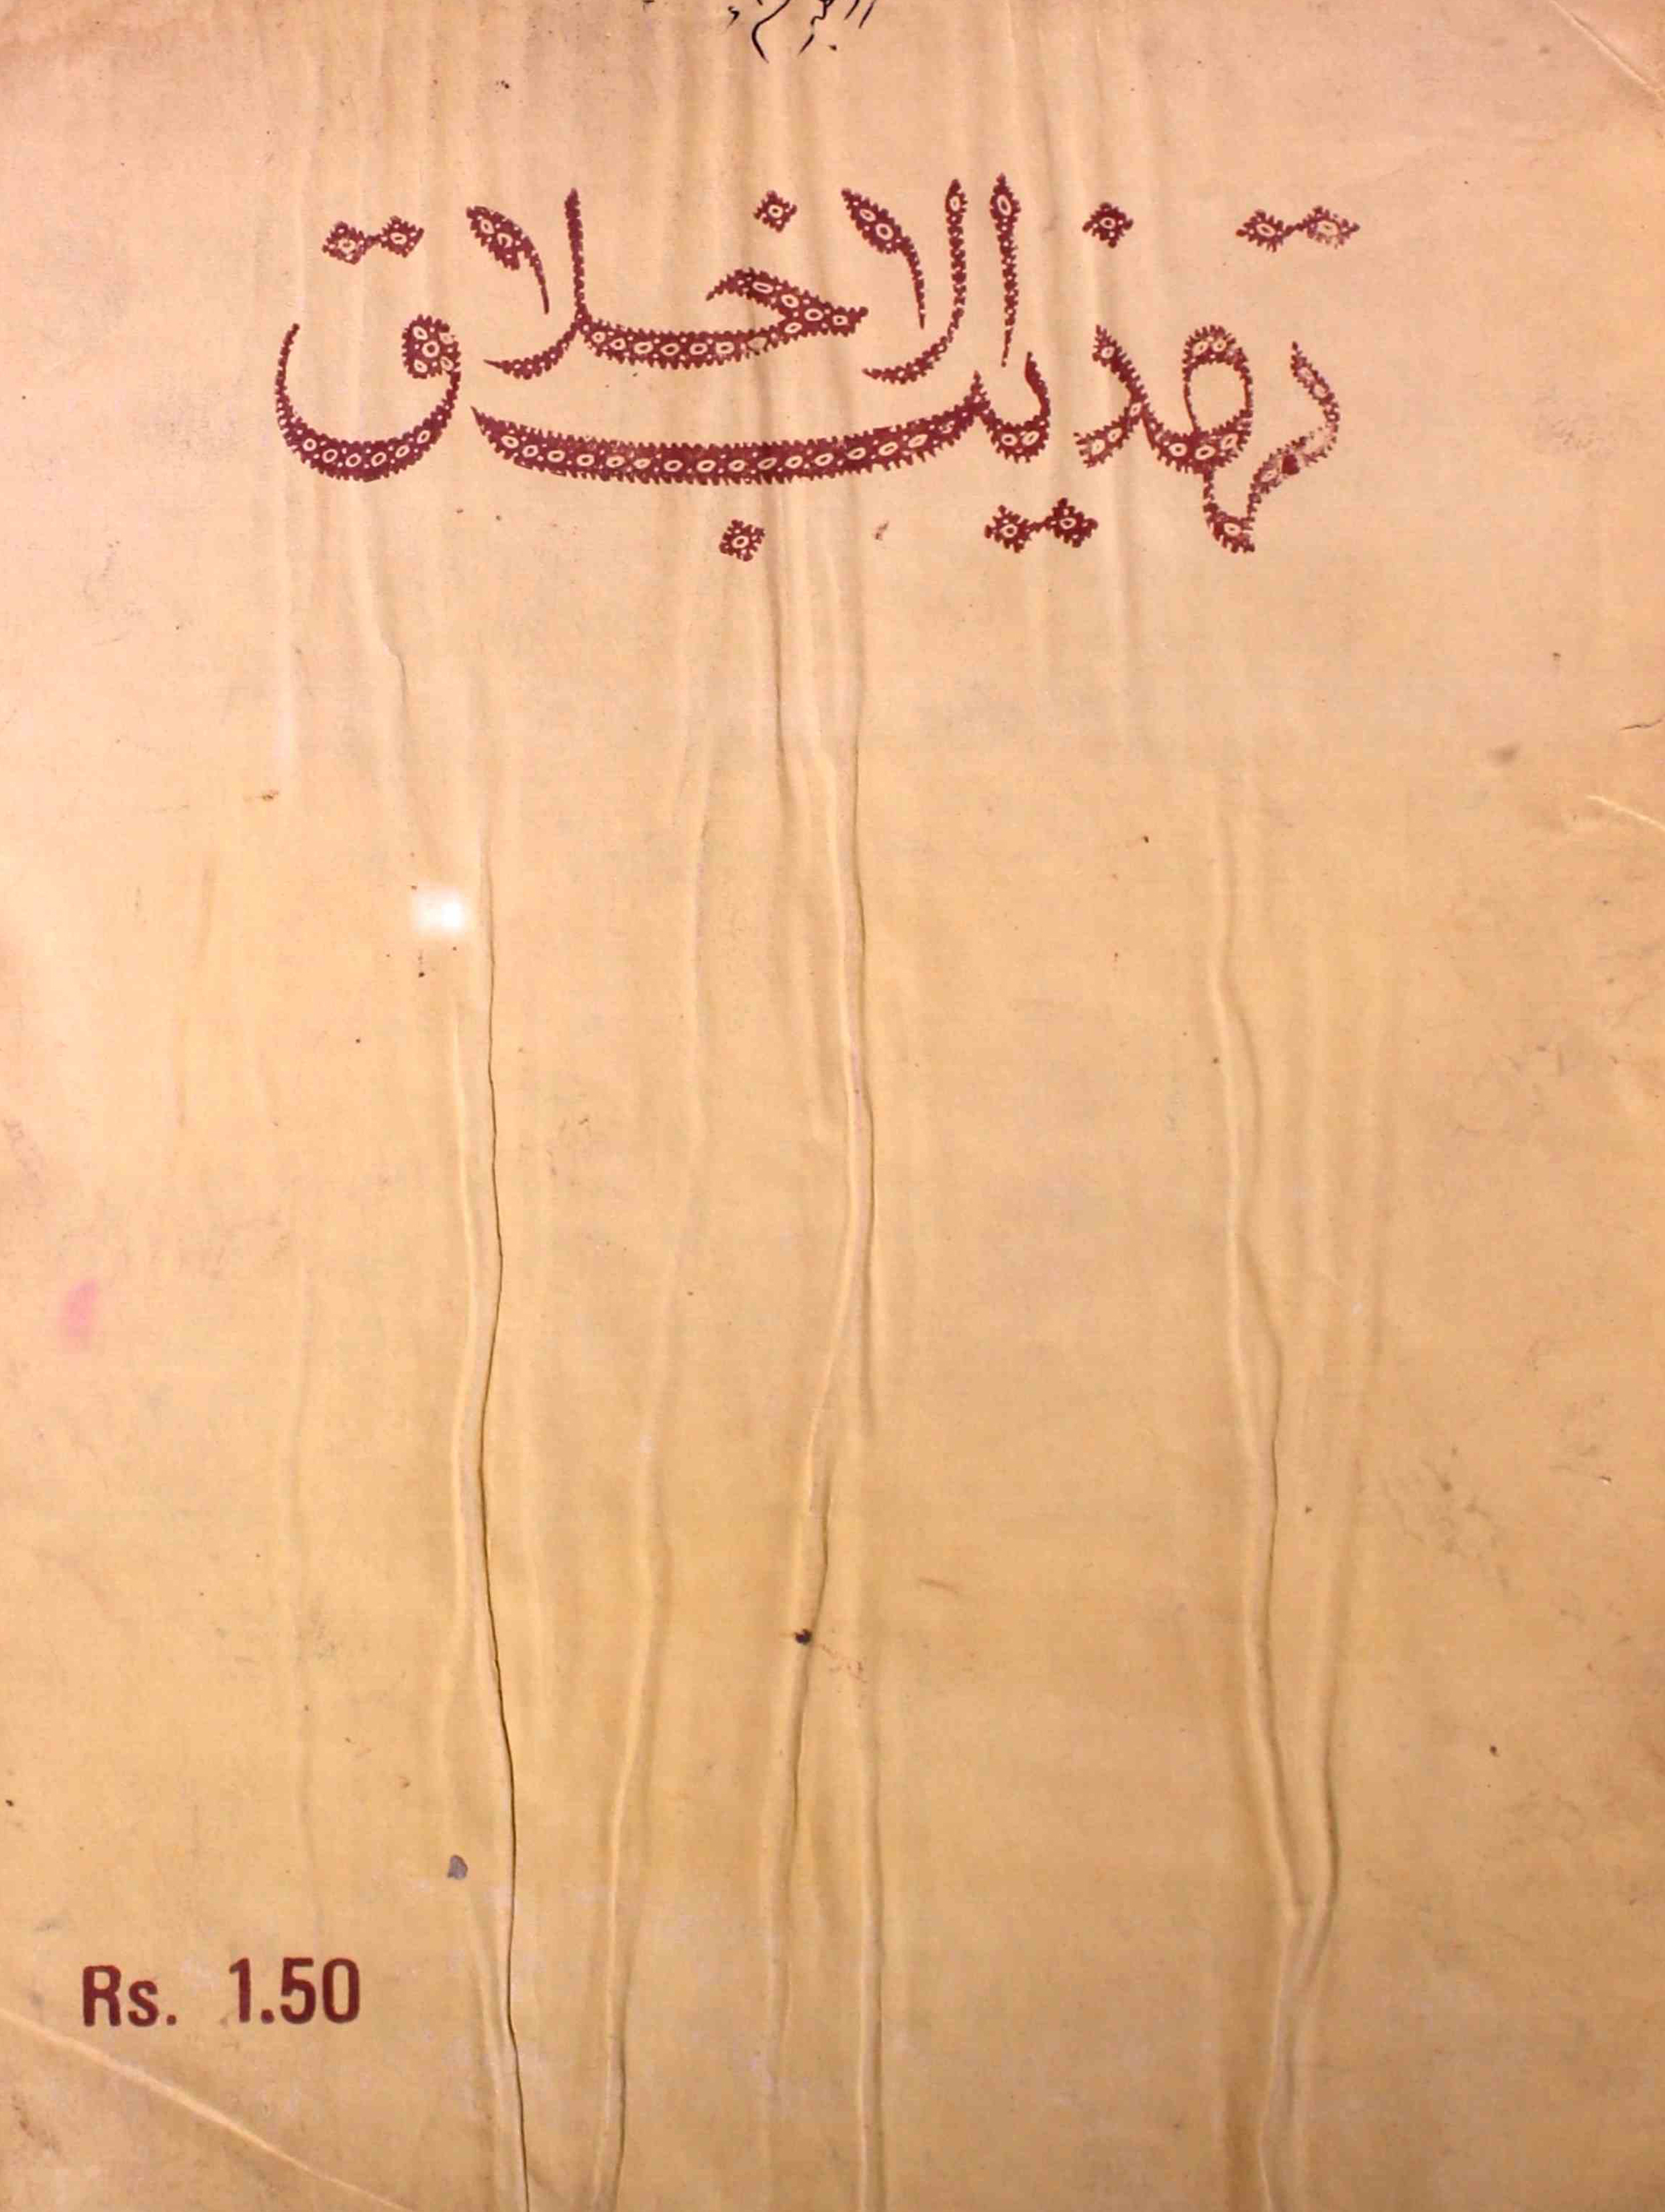 تہذیب الاخلاق
Rs. 1.50